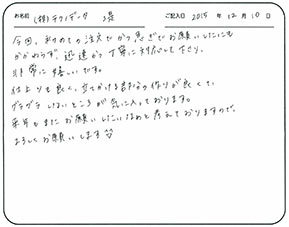 お名前 (株)テクノデータ 様 ご記入日 2015年12月10日
今回、初めての注文でかつ急ぎでお願いしたにも
かかわらず、迅速かつ丁寧に対応して下さり、
非常に嬉しいです。
仕上りも良く、立てかける部分の作りが良くて、
グラグラしないところが気に入っております。
来年もまたお願いしたいなぁと考えておりますので、
よろしくお願いします